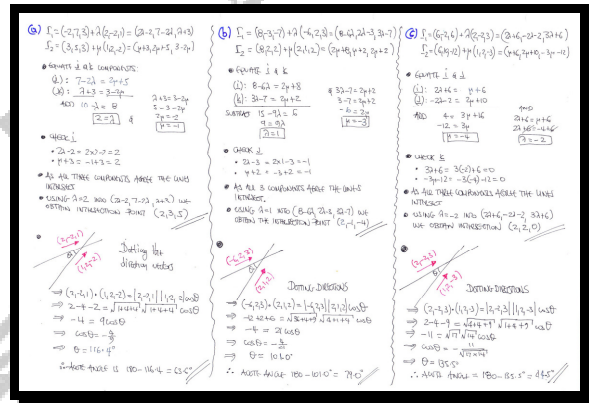 (a) Γ₁ = (-2,7,3) + λ(2,-2,1) = (2λ-2, 7-2λ, λ+3)
Γ₂ = (3,5,3) + μ(1,2,-2) = (μ+3, 2μ+5, 3-2μ)
• EQUATE j & k COMPONENTS:
(j): 7-2λ = 2μ+5
(k): λ+3 = 3-2μ
ADD 10-λ = 8
2=λ
&
λ+3 = 3-2μ
5 = 3-2μ
2μ = -2
μ = -1
• CHECK i
• 2λ-2 = 2×2-2 = 2
• μ+3 = -1+3 = 2
• AS ALL THREE COMPONENTS AGREE THE LINES
INTERSECT
• USING λ=2 INTO (2λ-2, 7-2λ, λ+3) WE
OBTAIN INTERSECTION POINT (2,3,5)
(2,-2,1)
θ
(1,2,-2)
Dotting the
direction vectors
⇒ (2,-2,1)•(1,2,-2) = |2,-2,1||1,2,-2|cosθ
⇒ 2-4-2 = √4+4+1 √1+4+4 cosθ
⇒ -4 = 9cosθ
⇒ cosθ = -4/9
⇒ θ = 116.4°
∴ ACUTE ANGLE IS 180-116.4 = 63.6°
(b) Γ₁ = (8,-3,-7) + λ(-6,2,3) = (8-6λ, 2λ-3, 3λ-7)
Γ₂ = (8,2,2) + μ(2,1,2) = (2μ+8, μ+2, 2μ+2)
• EQUATE i & k
(i): 8-6λ = 2μ+8
(k): 3λ-7 = 2μ+2
SUBTRACT 15-9λ = 6
9 = 9λ
λ=1
& 3λ-7 = 2μ+2
3-7 = 2μ+2
-6 = 2μ
μ = -3
• CHECK j
• 2λ-3 = 2×1-3 = -1
• μ+2 = -3+2 = -1
• AS ALL 3 COMPONENTS AGREE THE LINES
INTERSECT.
• USING λ=1 INTO (8-6λ, 2λ-3, 3λ-7) WE
OBTAIN THE INTERSECTION POINT (2,-1,-4)
(-6,2,3)
θ
(2,1,2)
DOTTING DIRECTIONS
⇒ (-6,2,3)•(2,1,2) = |-6,2,3||2,1,2|cosθ
⇒ -12+2+6 = √36+4+9 √4+1+4 cosθ
⇒ -4 = 21cosθ
⇒ cosθ = -4/21
⇒ θ = 101.0°
∴ ACUTE ANGLE 180-101.0° = 79.0°
(c) Γ₁ = (6,-2,6) + λ(2,-2,3) = (2λ+6, -2λ-2, 3λ+6)
Γ₂ = (6,10,-12) + μ(1,2,-3) = (μ+6, 2μ+10, -3μ-12)
• EQUATE i & j
(i): 2λ+6 = μ+6
(j): -2λ-2 = 2μ+10
ADD 4 = 3μ+16
-12 = 3μ
μ = -4
AND
2λ+6 = μ+6
2λ+6 = -4+6
λ = -2
• CHECK k
• 3λ+6 = 3(-2)+6 = 0
• -3μ-12 = -3(-4)-12 = 0
• AS ALL THREE COMPONENTS AGREE THE LINES
INTERSECT
• USING λ=-2 INTO (2λ+6, -2λ-2, 3λ+6)
WE OBTAIN INTERSECTION (2,2,0)
(2,-2,3)
θ
(1,2,-3)
DOTTING DIRECTIONS
⇒ (2,-2,3)•(1,2,-3) = |2,-2,3||1,2,-3|cosθ
⇒ 2-4-9 = √4+4+9 √1+4+9 cosθ
⇒ -11 = √17 √14 cosθ
⇒ cosθ = -11/√17×14
⇒ θ = 135.5°
∴ ACUTE ANGLE = 180-135.5° = 44.5°